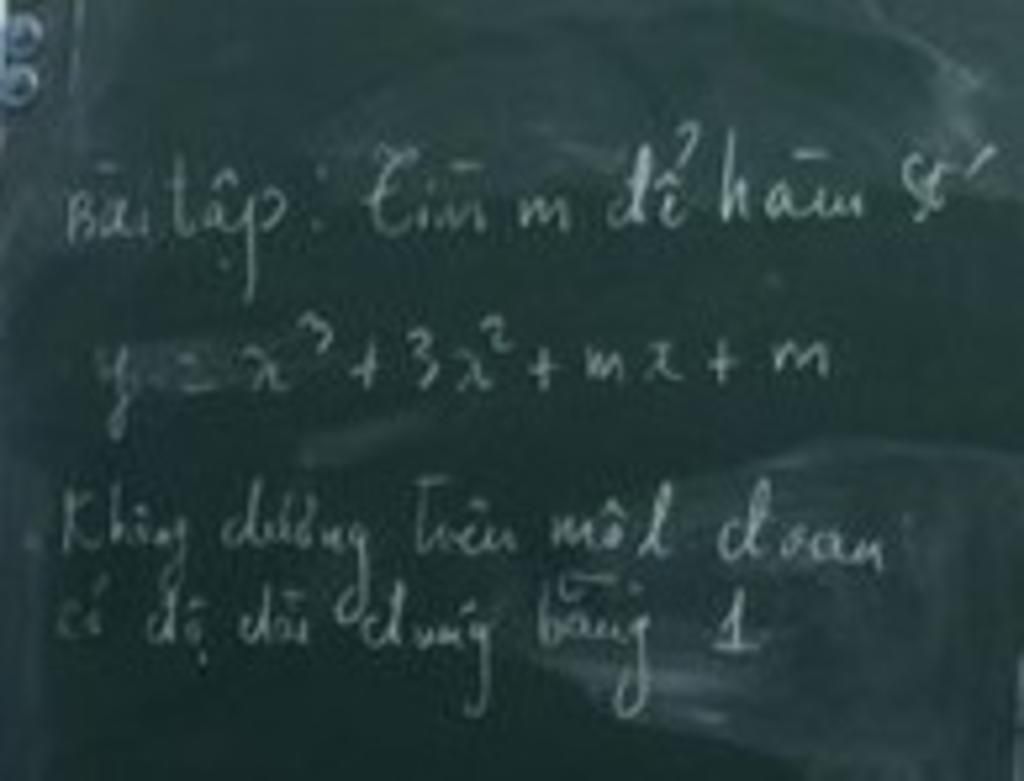 Bài tập: Tìm m để hàm số
y = x³ + 3x² + mx + m
Không dương trên một đoạn
có độ dài đúng bằng 1